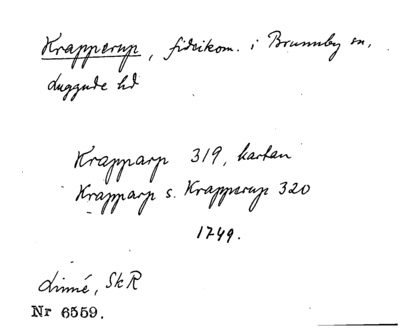 Krapperup, fideikom. i Brunnby sn,
Luggude hd
Krapparp 319, kartan
Krapparp s. Krapperup 320
1749.
Linné, SkR
Nr 6559.